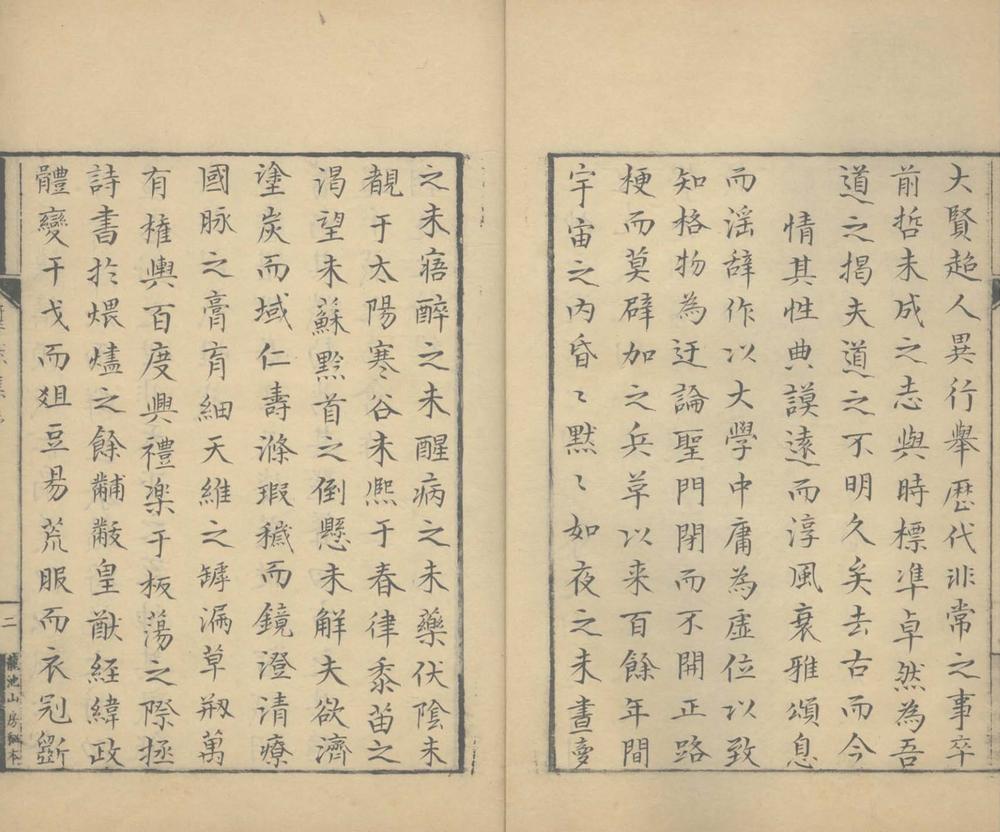 大賢超人異行舉歷代非常之事卒
前哲未成之志與時標準卓然為吾
道之揭夫道之不明久矣去古而今
情其性典謨遠而淳風衰雅頌息
而淫辭作以大學中庸為虛位以致
知格物為迂論聖門閉而不開正路
梗而莫辟加之兵草以来百餘年間
宇宙之内昏〻默〻如夜之未晝夢
之未寤醉之未醒病之未藥伏陰未
覩于太陽寒谷未熈于春律黍苗之
渴望未蘇黔首之倒懸未解夫欲濟
塗炭而域仁壽滌瑕穢而鏡澄清療
國脉之膏肓細天維之罅漏草刱萬
有權輿百度興禮楽于板蕩之際拯
詩書扵煨燼之餘黼黻皇猷經緯政
體變干戈而俎豆易荒服而衣冠斵
二
龍池山房秘本